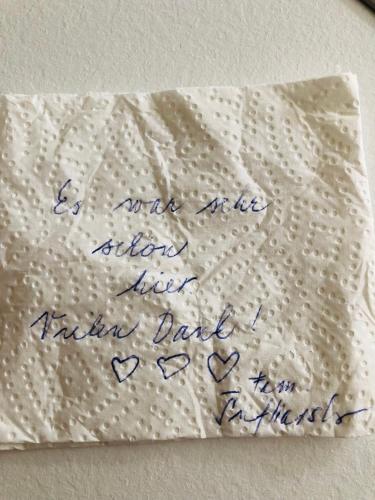 Es war sehr
schön
hier
Vielen Dank!
♡ ♡ ♡
Fam